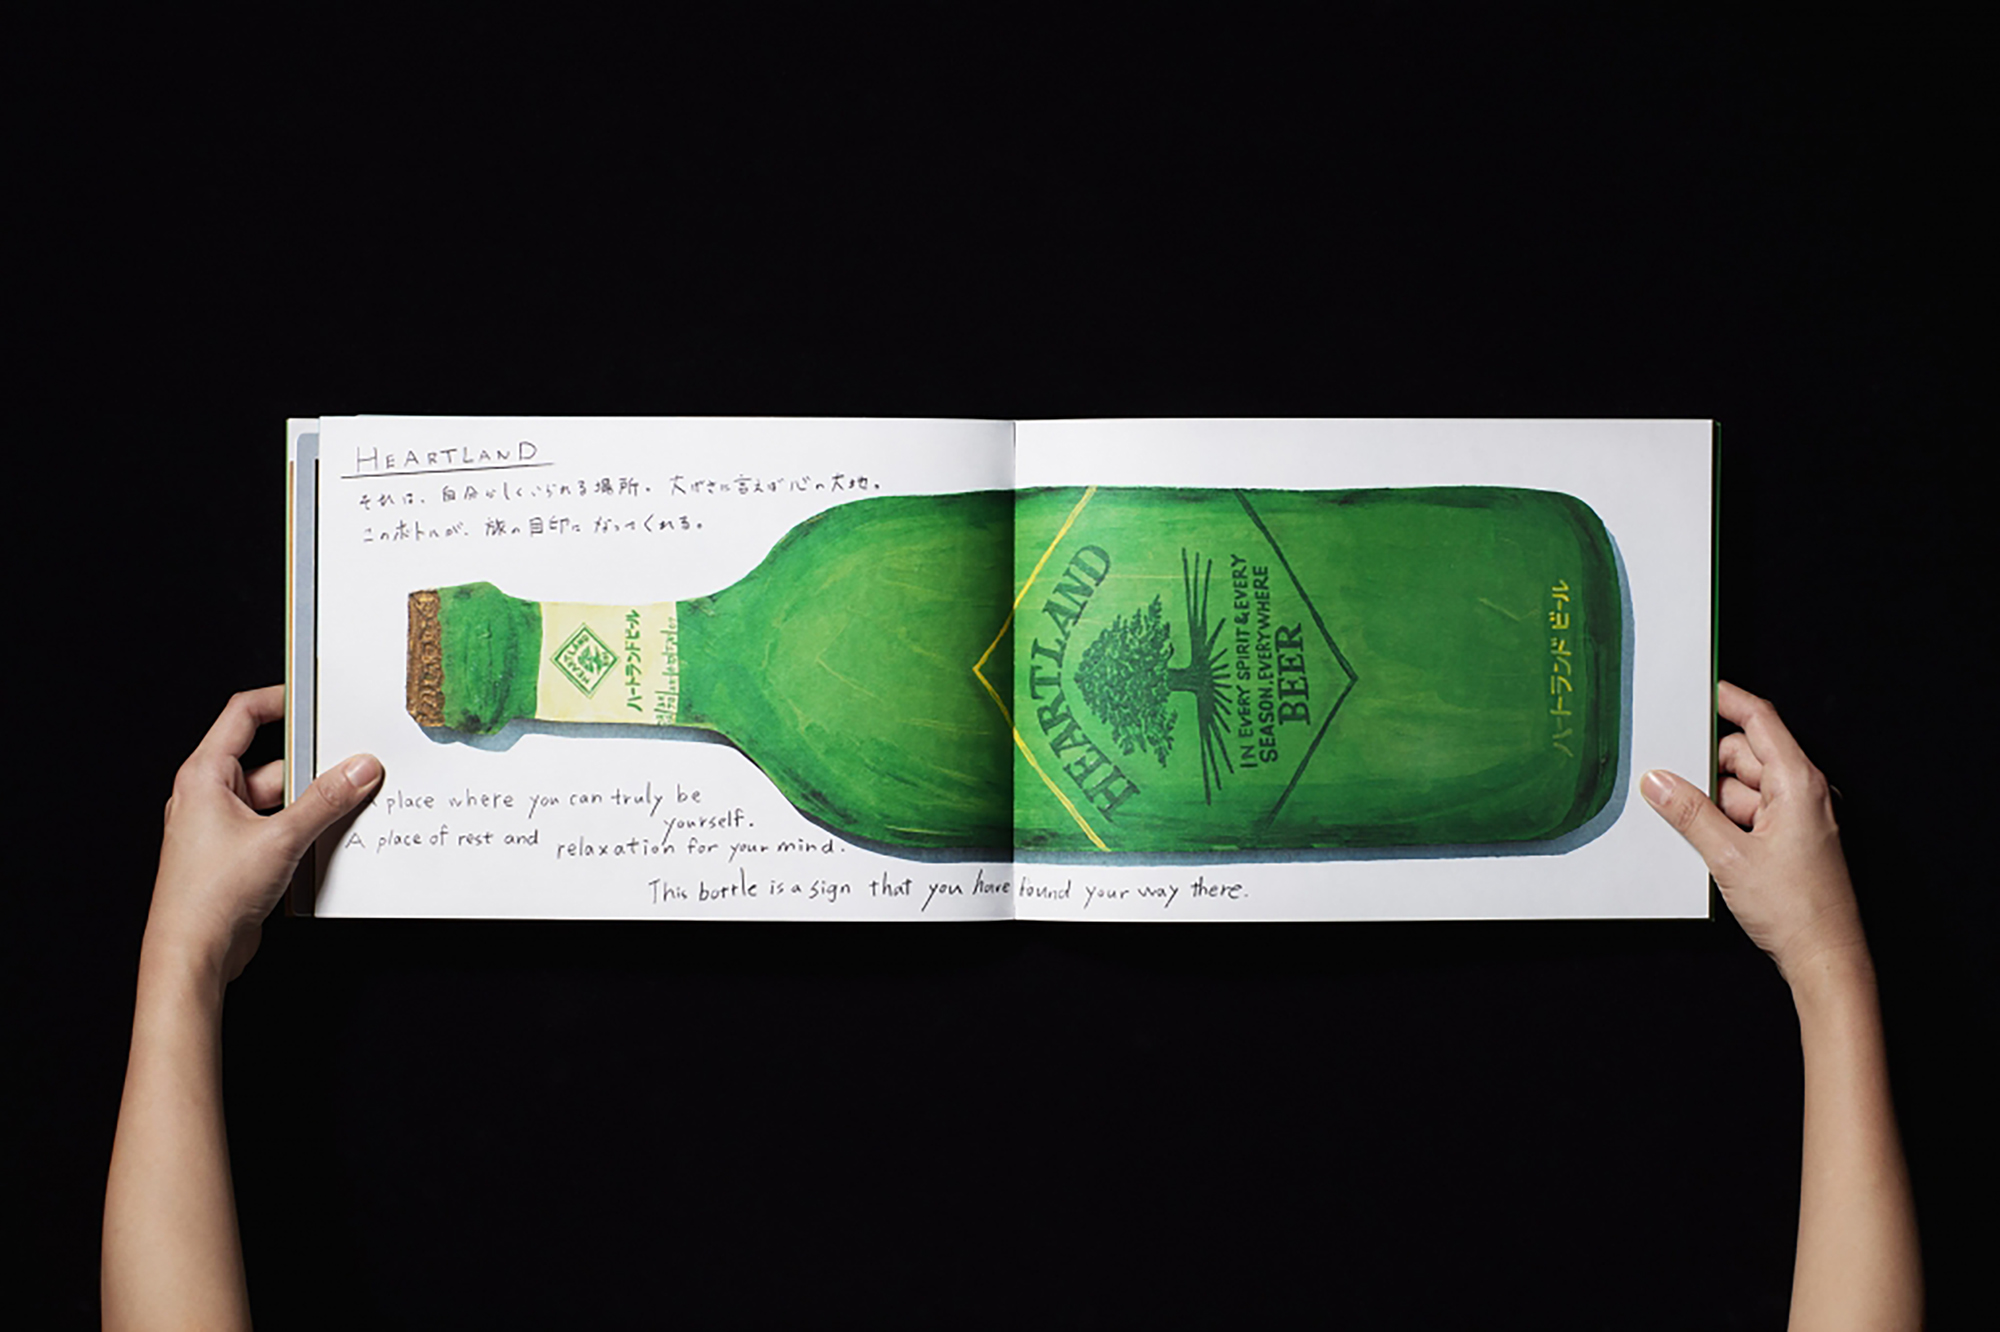 HEARTLAND
それは、自分らしくいられる場所。大げさに言えば心の大地。
このボトルが、旅の目印になってくれる。
HEARTLAND
ハートランドビール
HEARTLAND
IN EVERY SPIRIT & EVERY
SEASON, EVERYWHERE
BEER
ハートランドビール
A place where you can truly be
yourself.
A place of rest and relaxation for your mind.
This bottle is a sign that you have found your way there.